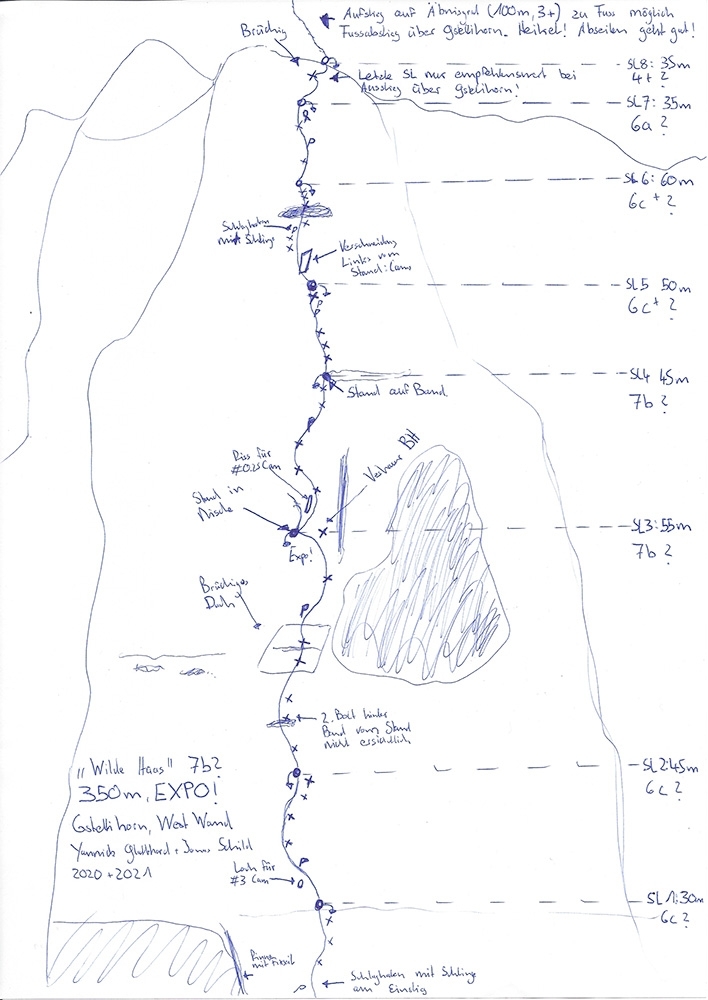 Aufstieg auf Äbnisgrat (100m, 3+) zu Fuss möglich
Fussabstieg über Gstellihorn. Heikel! Abseilen geht gut!
Brüchig
SL8: 35m
4+?
Letzte SL nur empfehlenswert bei
Ausstieg über Gstellihorn!
SL7: 35m
6a?
SL6: 60m
6c+?
Schlaghaken
mit Schlinge
Verschneidung
Links vom
Stand: Cams
SL5 50m
6c+?
SL4 45m
7b?
Stand auf Band
Riss für
#0.25 Cam
Verhauer BH
Stand in
Nische
Expo!
SL3: 55m
7b?
Brüchiges
Dach
2. Bolt hinter
Band vom Stand
nicht ersichtlich
SL2: 45m
6c?
„Wilde Haas" 7b?
350m, EXPO!
Gstellihorn, West Wand
Yannick Glatthard + Jonas Schild
2020 + 2021
Loch für
#3 Cam
SL1: 30m
6c?
Rinnen
mit Fixseil
Schlaghaken mit Schlinge
am Einstieg